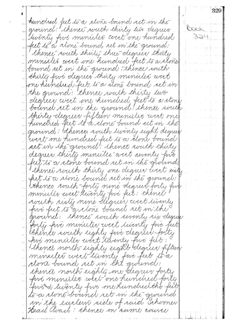 329
hundred feet to a stone bound set in the
ground: thence south thirty six degrees
twenty five minutes west one hundred
feet to a stone bound set in the
ground: thence south thirty degrees thirty
minutes west one hundred feet to a stone
bound set in the ground: thence south
thirty five degrees thirty minutes west
one hundred feet to a stone bound set in
the ground: thence south thirty two
degrees west one hundred feet to a stone
bound set in the ground: thence south
thirty degrees fifteen minutes west one
hundred feet to a stone bound set in the
ground: thence south twenty eight degrees
west one hundred feet to a stone bound
set in the ground: thence south thirty
degrees thirty minutes west seventy five
feet to a stone bound set in the ground:
thence south thirty one degrees west sixty
feet to a stone bound set in the ground:
thence south forty nine degrees forty five
minutes west twenty five feet: thence
south sixty nine degrees west twenty
five feet to a stone bound set in the
ground: thence south seventy six degrees
forty five minutes west twenty five feet:
thence south eighty five degrees forty
five minutes west twenty five feet:
thence north eighty eight degrees fifteen
minutes west twenty five feet to a
stone bound set in the ground:
thence north eighty one degrees forty
five minutes west one hundred forty
five & twenty five one hundredths feet
to a stone bound set in the ground
in the easterly side of said
Road: thence in same course